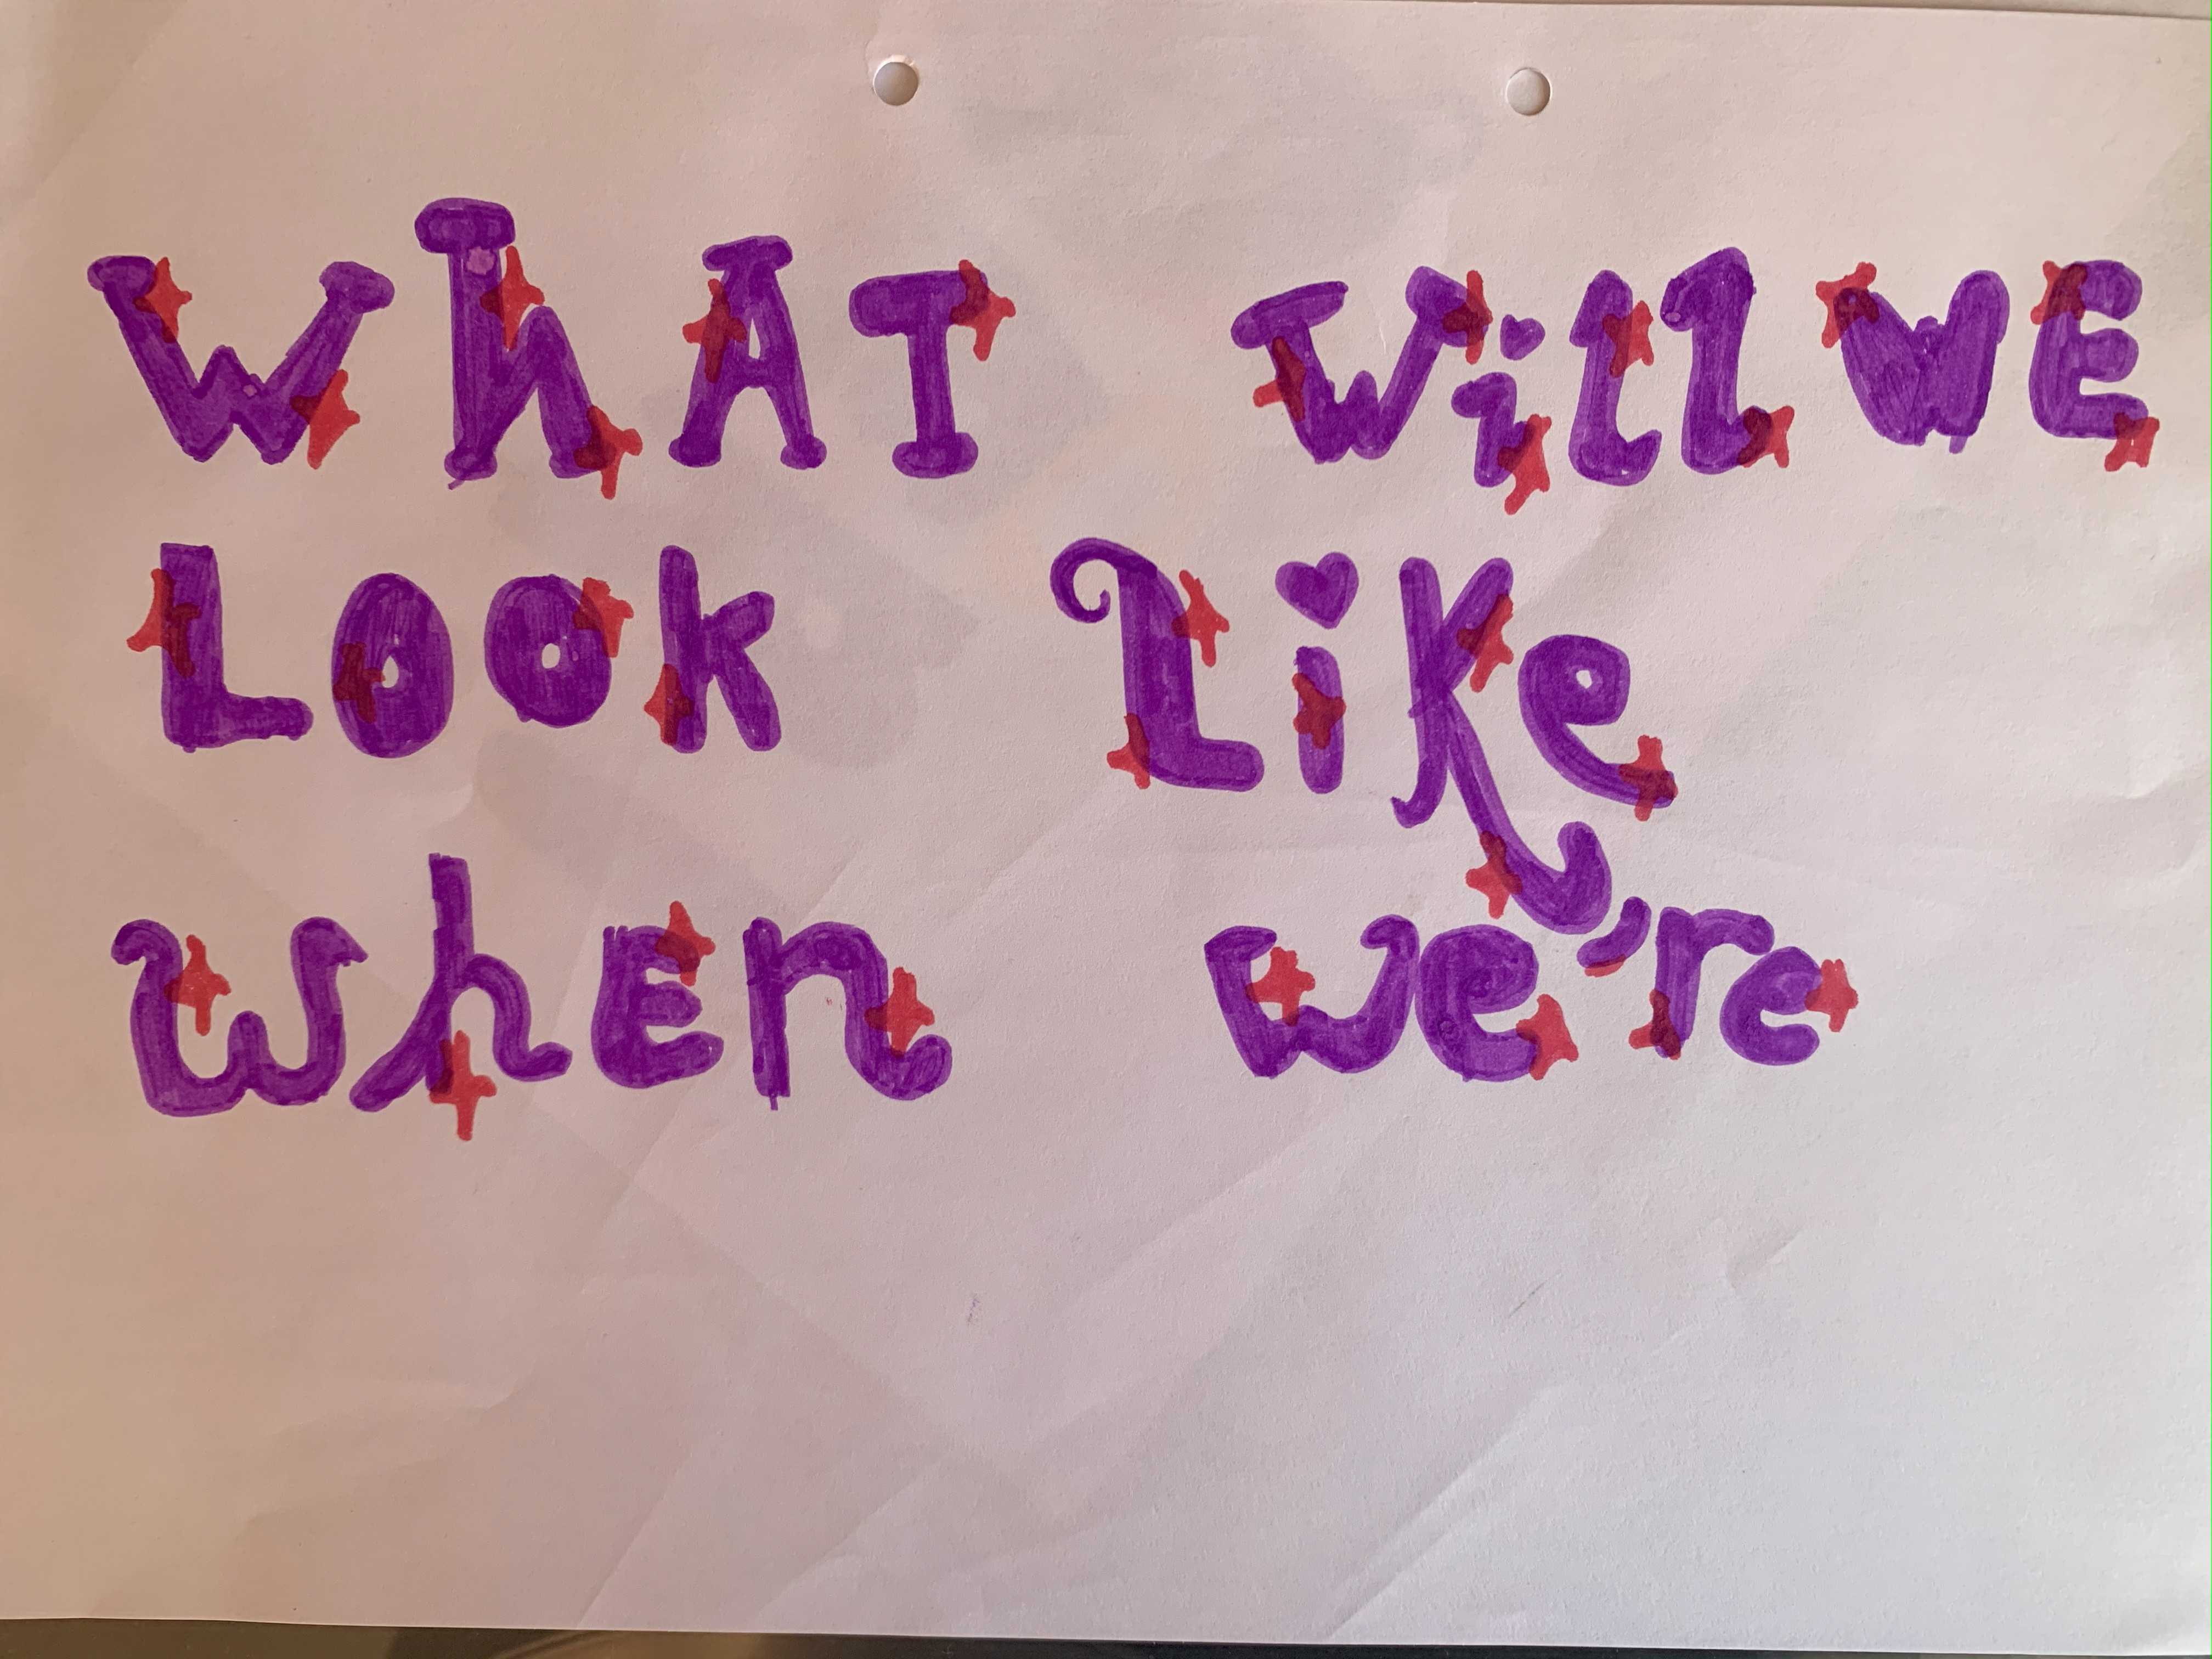 WhAT will WE
LOOk Like
whEn we're